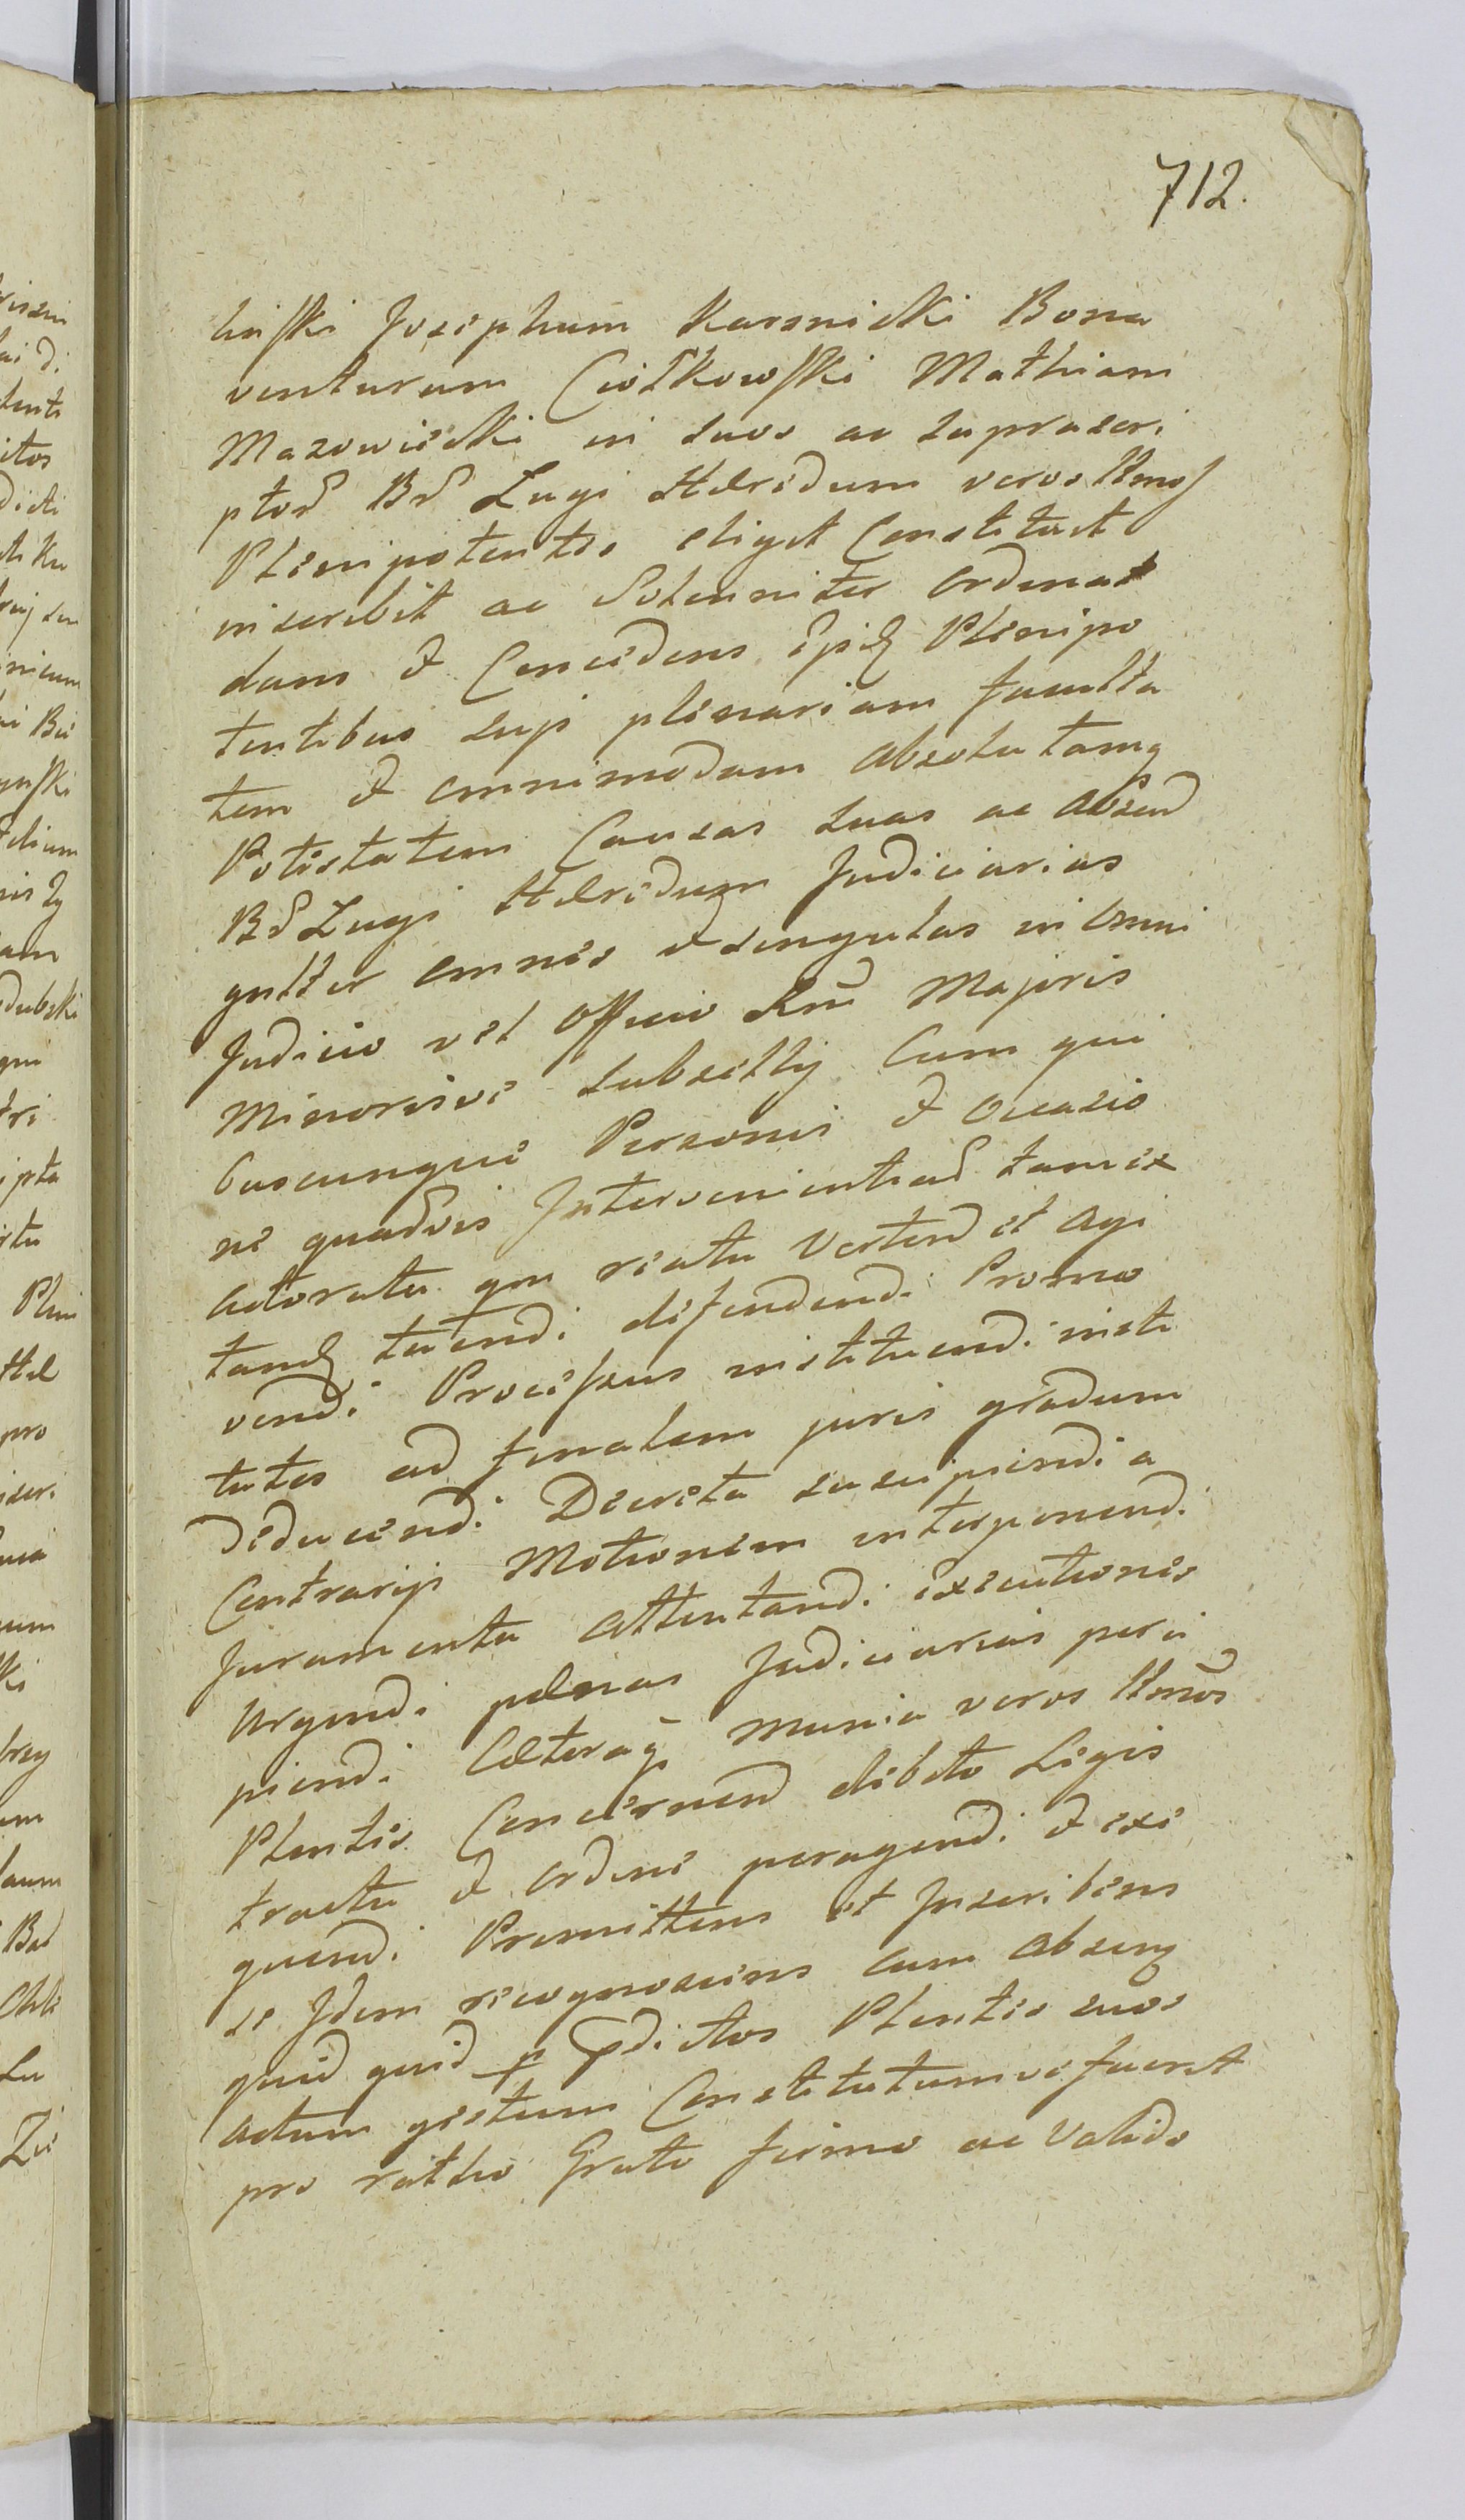 712.
liński Josephum Karsnicki Bona
venturam Ciołkowski Mathiam
Mazowiecki in suos ac suprascri
ptos Bd Lugi Hæredum veros ltmos
Plenipotentes eligit Constituit
inscribit ac Solenniter ordinat
dans et Concedens ipsis Plenipo
tentibus suis plenariam faculta
tem et omnimodam absolutamq
Potestatem Causas suas ac absend
Bd Lugi Hæredum Judiciarias
gnlter omnes et singulas in Omni
Judicio vel Officio Rni Majoris
Minorisve Subsellij Cum qui
buscunque Personis et occasio
ne quadvis Intervenientiad tam ex
actoratu qm reatu Vertend et Agi
tand tuend. defendend. Promo
vend. Processus instituend. insti
tutos ad finalem juris gradum
deducend. Decreta suscipiendi a
Contrarijs Motionem interponend.
Juramenta attentand. executiones
Urgend. pænas Judiciarias peri
piend. Cæteraq munia veros ltmos
Plentes Concernend debito Legis
tractu et ordine peragend. et exe
quend. Promittens et Inscribens
se Idem recognoscens cum absenq
quid quid p pdictos Plentes suos
actum gestum Constitutumve fuerit
pro ratho Grato firmo ac Valido